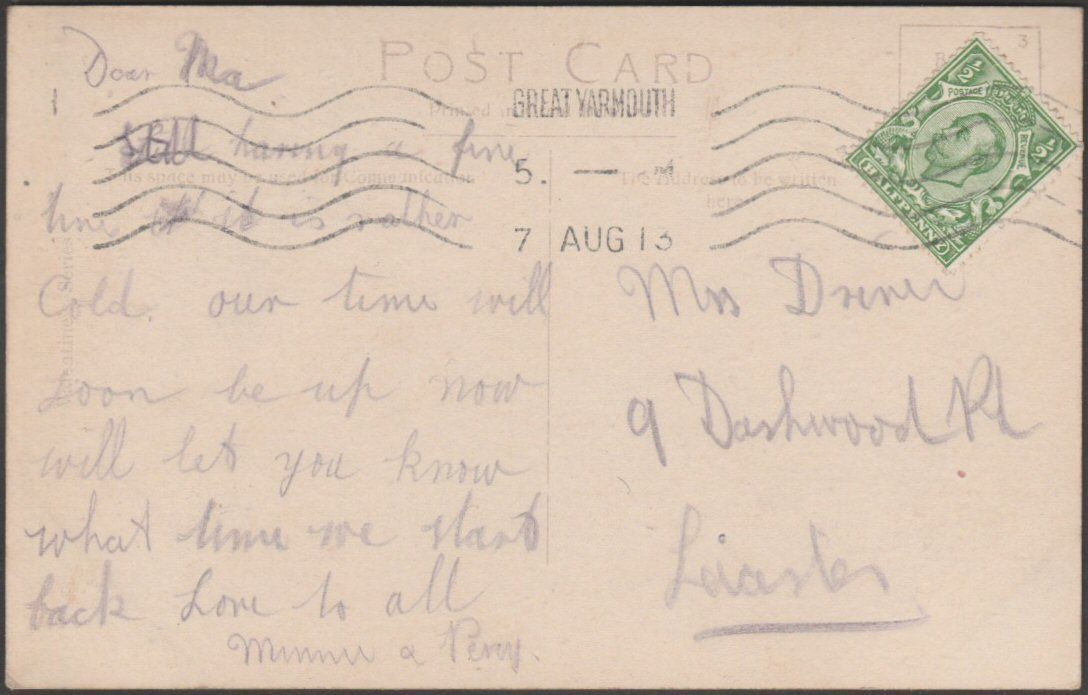 POST CARD
Dear Ma
Still having a fine
time it is rather
Cold. our time will
soon be up now
will let you know
what time we start
back Love to all
Minnie & Percy.
GREAT YARMOUTH
5.
7 AUG 13
This space may be used for Communication
The Address to be written
here
Series
3
POSTAGE
HALFPENNY
1/2
1/2
Mrs Driver
9 Dashwood Rd
Leicester